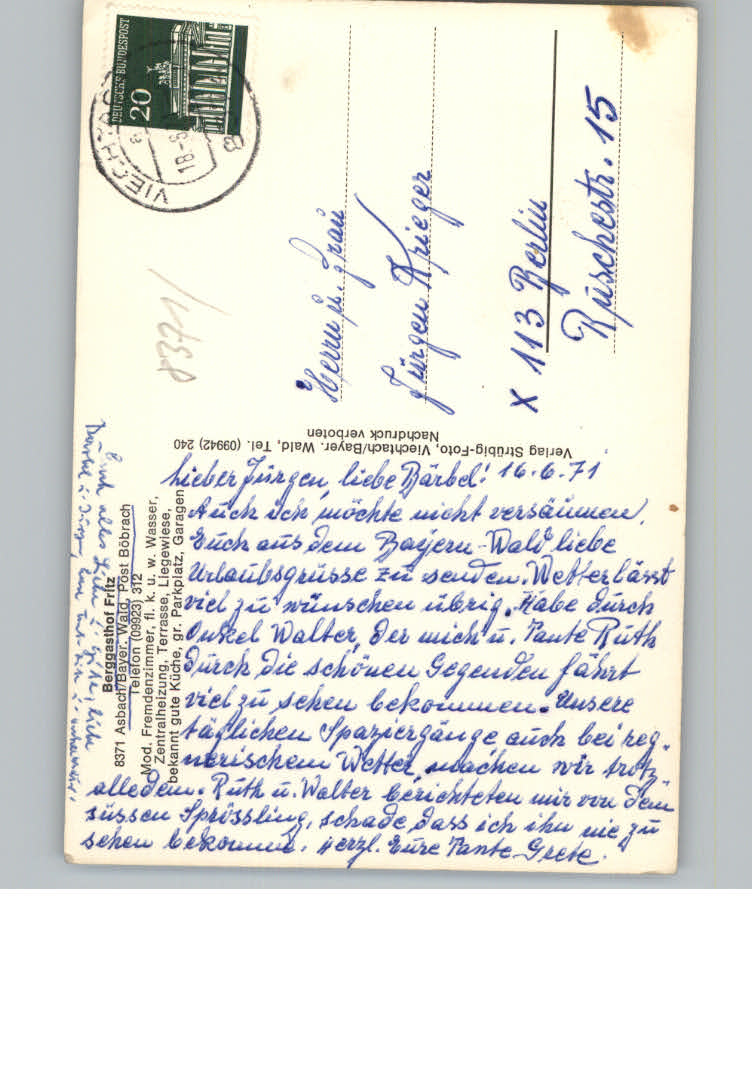 DEUTSCHE BUNDESPOST
20
VIECHTACH
18
8371
Herrn u. Frau
Jürgen Krieger
X 113 Berlin
Rüschestr. 15
Verlag Strübig-Foto, Viechtach/Bayer. Wald, Tel. (09942) 240
Nachdruck verboten
Berggasthof Fritz
8371 Asbach/Bayer. Wald, Post Böbrach
Telefon (09923) 312
Mod. Fremdenzimmer, fl. k. u. w. Wasser,
Zentralheizung, Terrasse, Liegewiese,
bekannt gute Küche, gr. Parkplatz, Garagen
Lieber Jürgen, liebe Bärbel! 16.6.71
Auch ich möchte nicht versäumen,
Euch aus dem Bayern-Wald liebe
Urlaubsgrüsse zu senden. Wetter lässt
viel zu wünschen übrig. Habe durch
Onkel Walter, der mich u. Tante Ruth
durch die schönen Gegenden fährt
viel zu sehen bekommen. Unsere
täglichen Spaziergänge, auch bei reg-
nerischem Wetter, machen wir trotz
alledem. Ruth u. Walter berichteten mir von dem
süssen Sprössling, schade, dass ich ihn nie zu
sehen bekomme. Herzl. Eure Tante Grete.
Euch alles Liebe u. Gute, liebe